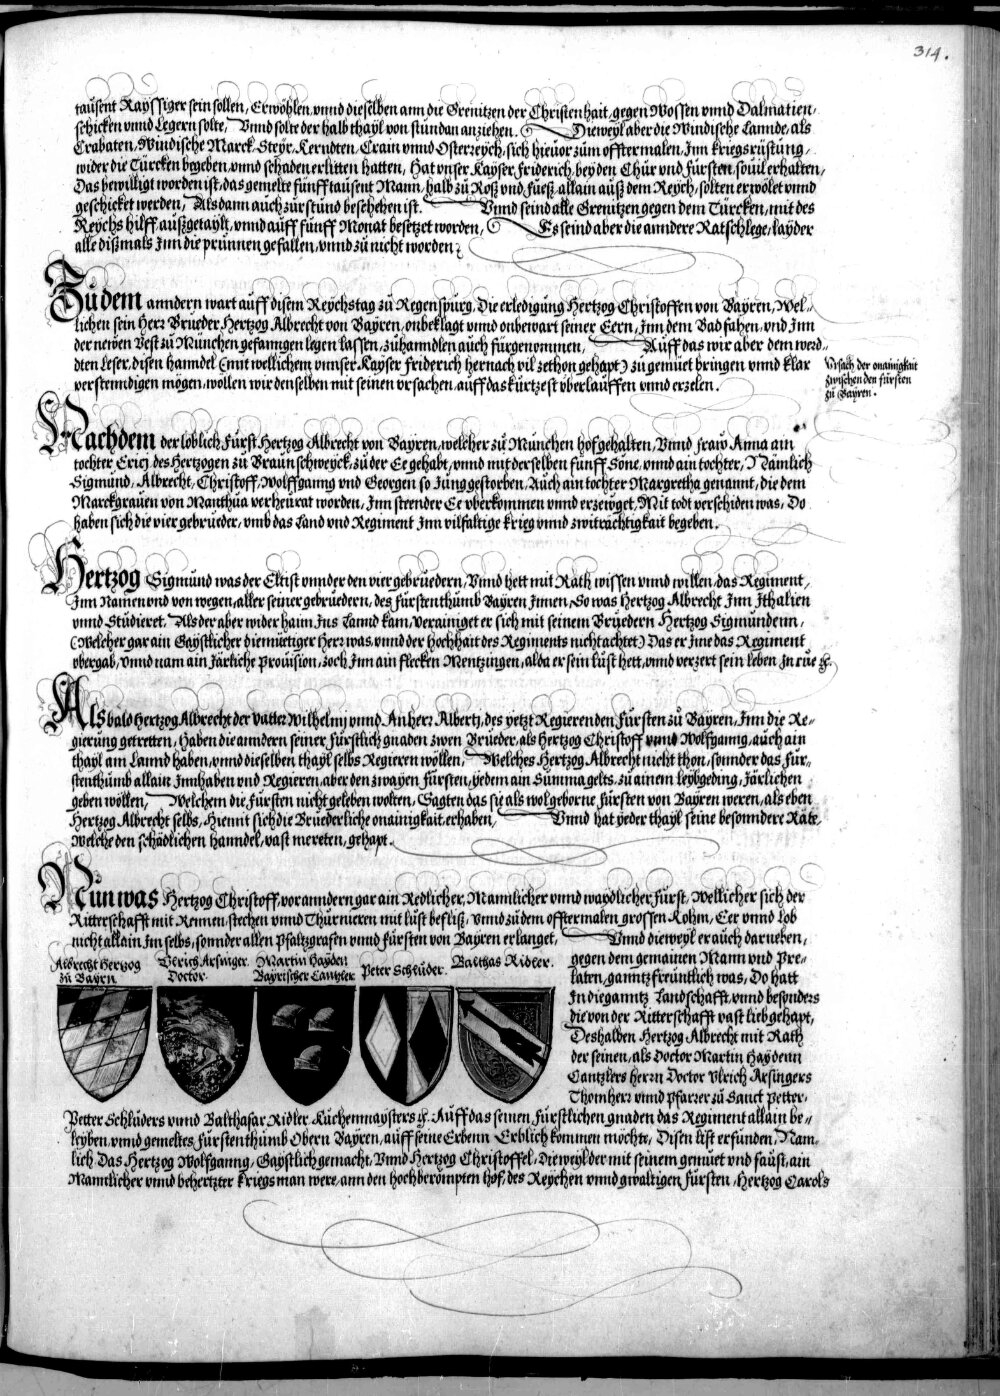 314.
taüsent Raÿssiger sein sollen, Erwöhlen vnnd dieselben ann die Grenitzen der Christenhait, gegen Wossen vnnd Dalmatien,
schicken vnnd Legern solte, Vnnd solte der halb thaÿl von stundan anziehen. Dieweÿl aber die Windische Lannde, als
Crabaten, Windische Marck, Steÿr, Kerndten, Crain vnnd Osterreÿch, sich hieuor züm offtermalen, Jnn kriegsrüstüng,
wider die Türcken begeben, vnnd schaden erlitten hatten, Hat vnser Kaÿser Friderich, beÿ den Chür vnd Fürsten, souil erhalten,
Das bewilligt worden ist, das gemelte fünff taüsent Mann, halb zü Roß vnd Füeß, allain aüß dem Reÿch, solten erwölet vnnd
geschicket werden, Als dann aüch zür stünd beschehen ist. Vnnd seind alle Grenitzen gegen dem Türcken, mit des
Reÿchs hilff aüßgetaÿlt, vnnd aüff fünff Monat besetzet worden, Es seind aber die anndere Ratschlege, laÿder
alle dißmals Jnn die prünnen gefallen, vnnd zü nicht worden.
Zü dem anndern wart aüff disem Reÿchstag zü Regenspürg, Die erledigüng Hertzog Christoffen von Baÿren, Wel-
lichen sein Herr Brüeder, Hertzog Albrecht von Baÿren, onbeklagt vnnd onbewart seiner Eern, Jnn dem Bad fahen, vnd Jnn
der newen Vest zü München gefanngen legen lassen, zühanndlen aüch fürgenommen, Aüff das wir aber dem werd-
dten Leser, disen hanndel (mit wellichem vnnser Kaÿser Friderich hernach vil zethon gehapt) zü gemüet bringen vnnd klar
versteendigen mögen, wollen wir denselben mit seinen vrsachen, aüff das kürtzest vberlaüffen vnnd erzelen.
Vrsach der onainigkait
zwischen den fürsten
zü Baÿren.
Nachdem der loblich Fürst, Hertzog Albrecht von Baÿren, welcher zü München hof gehalten, Vnnd fraw Anna ain
tochter Ericj des Hertzogen zü Braünschweÿck, zü der Ee gehabt, vnnd mit derselben fünff Söne, vnnd ain tochter, Nämlich
Sigmünd, Albrecht, Christoff, Wolffganng vnd Georgen so Jüng gestorben, Aüch ain tochter Margretha genannt, die dem
Marckgrauen von Manthüa verheürat worden, Jnn steender Ee vberkommen vnnd erzewget, Mit todt verschiden was, Do
haben sich die vier gebrüeder, vmb das Land vnd Regiment Jnn vilfaltige krieg vnnd zwiträchtigkait begeben.
Hertzog Sigmünd was der Eltist vnnder den vier gebrüedern, Vnnd hett mit Rath wissen vnnd willen, das Regiment,
Jnn Namen vnd von wegen, aller seiner gebrüedern, des Fürstenthümb Baÿren Jnnen, So was Hertzog Albrecht Jnn Jthalien
vnnd Stüdieret. Als der aber wider haim Jns Lannd kam, verainiget er sich mit seinem Brüedern Hertzog Sigmündeun,
(Welcher gar ain Gaÿstlicher diemüetiger Herr was, vnnd der hochhait des Regiments nicht achtet) Das er Jne das Regiment
vbergab, vnnd nam ain Järliche Prouision, zoch Jnn ain flecken Mentzingen, alda er sein lüst hett, vnnd verzert sein leben Jn rüe ꝛc.
Als bald Hertzog Albrecht der Vatter Wilhelmj vnnd Anherr Albertj, des ÿetzt Regierenden Fürsten zü Baÿren, Jnn die Re-
gierüng getretten, Haben die anndern seiner Fürstlich gnaden zwen Brüeder, als Hertzog Christoff vnnd Wolfganng, aüch ain
thaÿl am Lannd haben, vnnd dieselben thaÿl selbs Regieren wöllen, Welches Hertzog Albrecht nicht thon, sonnder das Für-
stenthümb allain Jnnhaben vnd Regieren, aber den zwaÿen Fürsten, ÿedem ain Summa gelts, zü ainem leÿbgeding, Järlichen
geben wöllen, Welchem die Fürsten nicht geleben wolten, Sagten das sie als wolgeborne Fürsten von Baÿren weren, als eben
Hertzog Albrecht selbs, Hiemit sich die Brüederliche onainigkait erhaben, Vnnd hat ÿeder thaÿl seine besonndere Räte,
Welche den schädlichen hanndel, vast mereten, gehapt.
Nün was Hertzog Christoff, vor anndern gar ain Redlicher, Mannlicher vnnd waÿdlicher Fürst, Wellicher sich der
Ritterschafft mit Rennen, stechen vnnd Thürnieren mit lüst befliß, Vnnd zü dem offtermalen grossen Rohm, Eer vnnd Lob
nicht allain Jm selbs, sonnder allen Pfaltzgrafen vnnd Fürsten von Baÿren erlanget, Vnnd dieweÿl er aüch darneben,
gegen dem gemainen Mann vnd Pre-
laten, ganntz freüntlich was, Do hatt
Jn die ganntz Landschafft, vnnd besonders
die von der Ritterschafft vast lieb gehapt,
Deshalben Hertzog Albrecht mit Rath
der seinen, als Doctor Martin Haÿdenn
Cantzlers, herrn Doctor Vlrich Arsingers
Thomherr vnnd Pfarrer zü Sanct Petter,
Albrecht Hertzog
zü Baÿrn.
Vlrich Arsinger.
Doctor.
Martin Haÿden
Baÿrischer Cantzler
Peter Schlüder.
Balthas Ridler.
Petter Schlüders vnnd Balthasar Ridler Küchenmaÿsters ꝛc. Aüff das seinen Fürstlichen gnaden das Regiment allain be-
leÿben, vnnd gemeltes Fürstenthümb Obern Baÿren, aüff seine Erbenn Erblich kommen möchte, Disen list erfünden, Näm-
lich Das Hertzog Wolfganng, Gaÿstlich gemacht, Vnnd Hertzog Christoffel, Dieweÿl der mit seinem gemüet vnd faüst, ain
Mannlicher vnnd behertzter kriegsman were, ann den hochberömpten hof, des Reÿchen vnnd gwaltigen Fürsten, Hertzog Carols